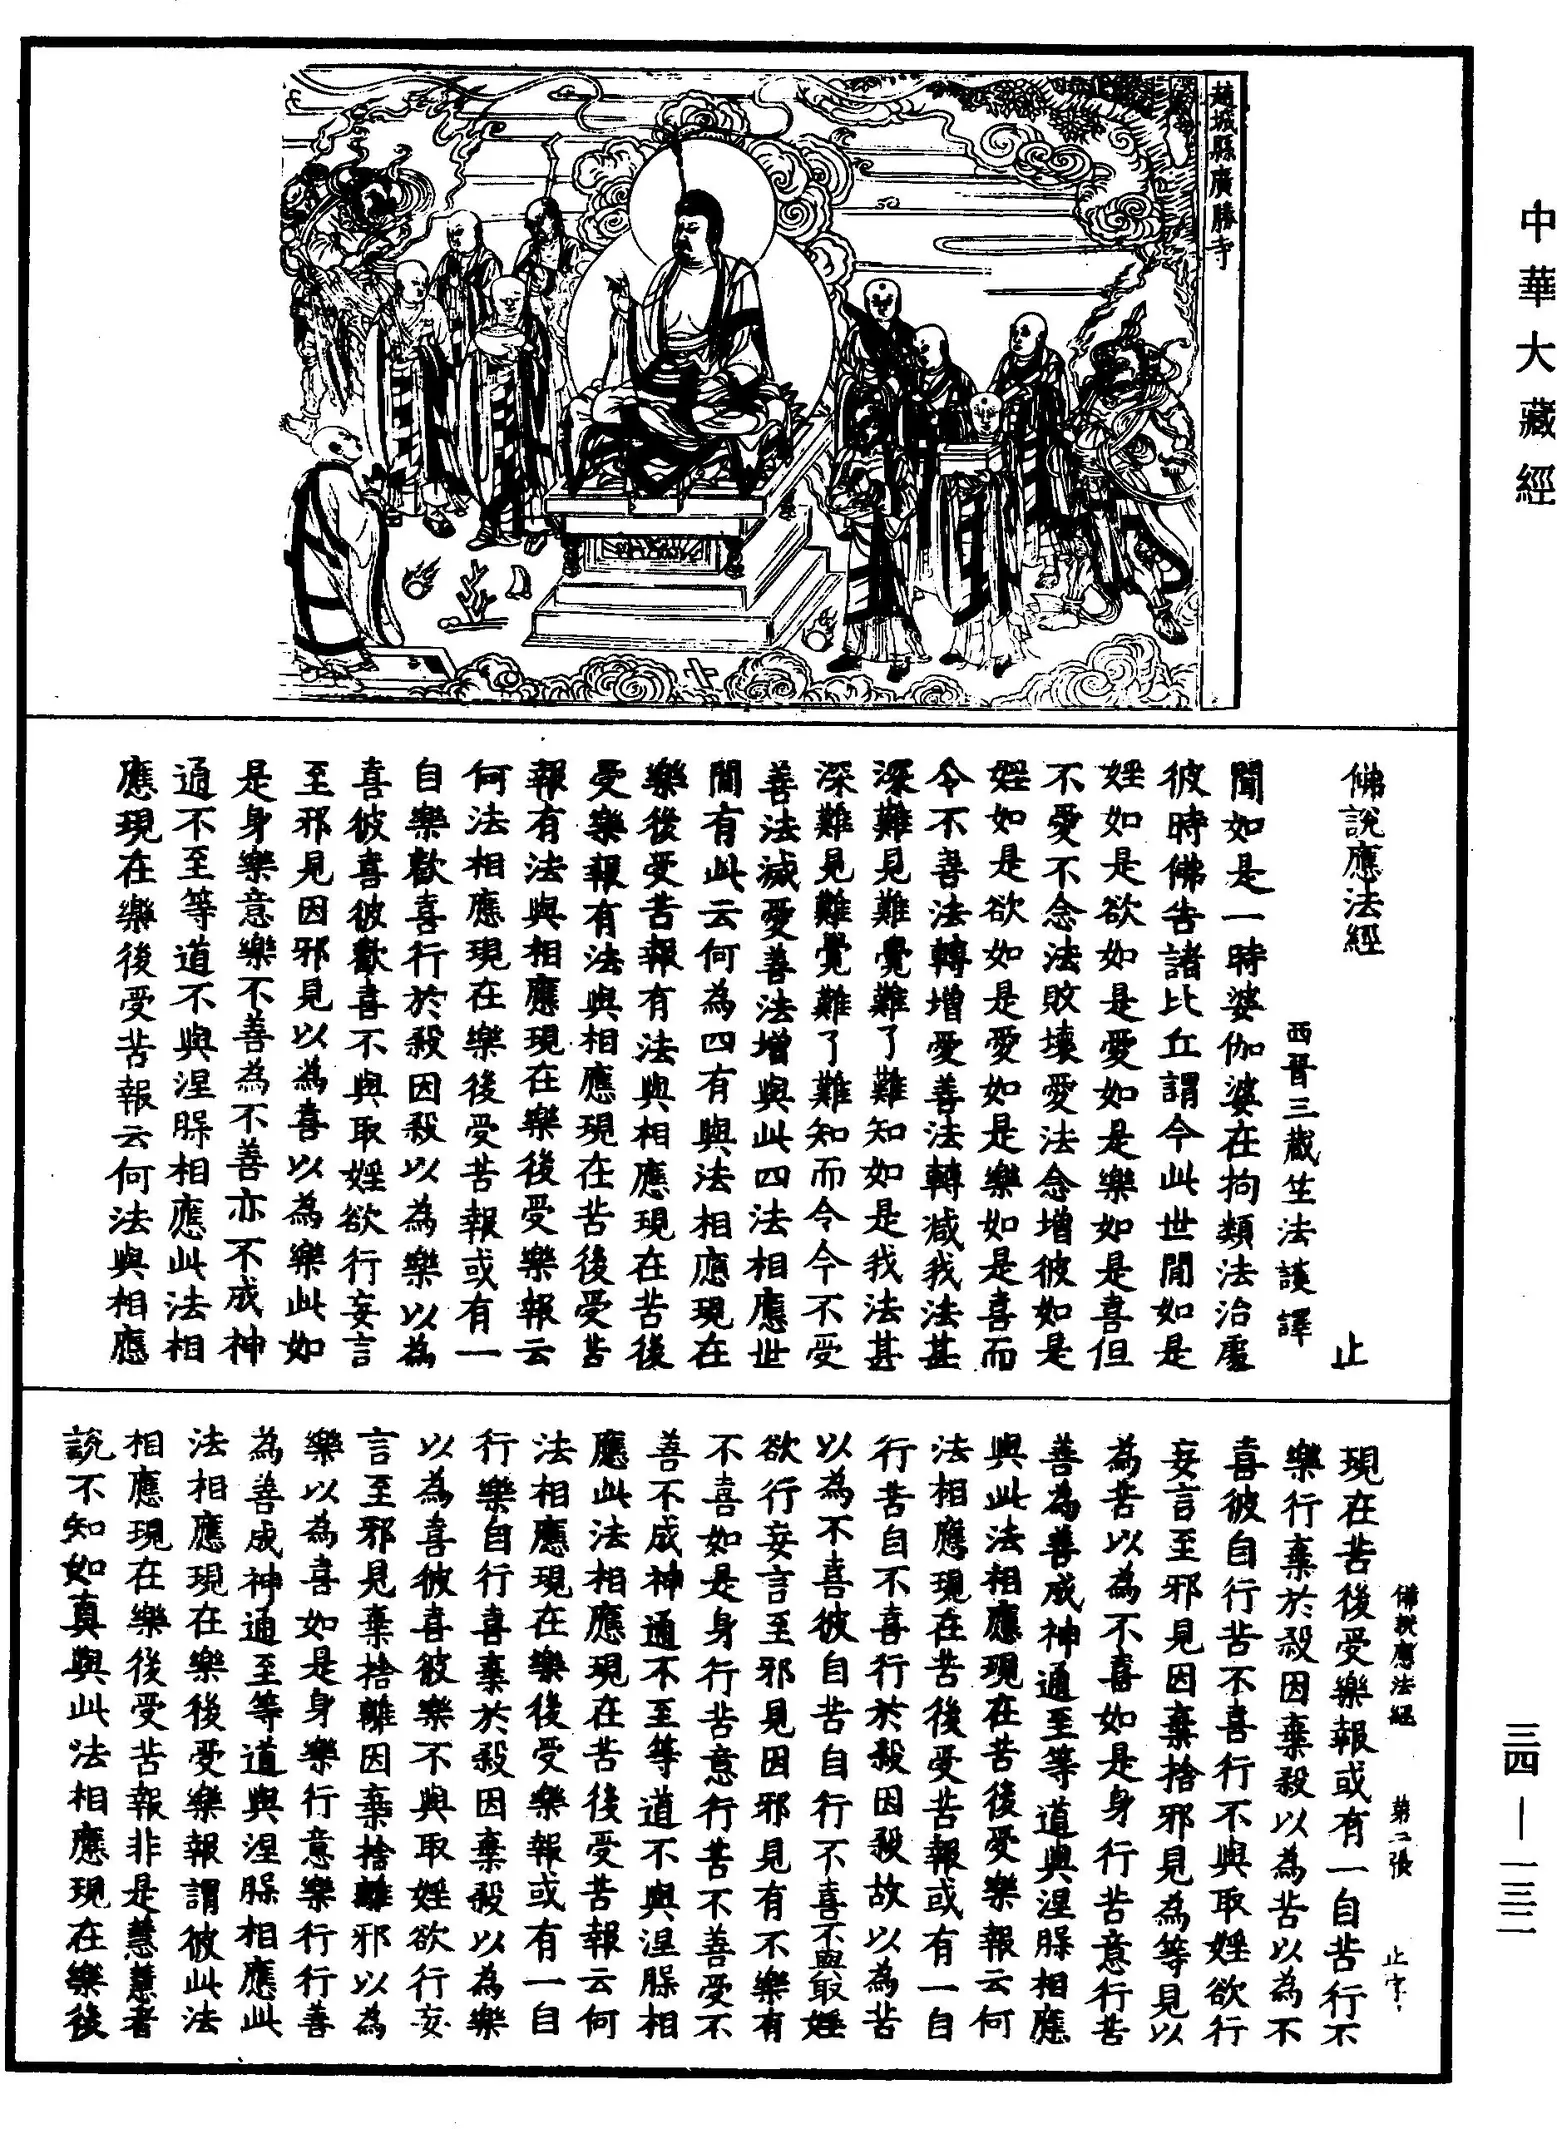 中華大藏經
趙城縣廣勝寺
佛說應法經　止
西晉三藏竺法護譯
聞如是一時婆伽婆在拘類法治處
彼時佛告諸比丘謂今此世間如是
婬如是欲如是愛如是樂如是喜但
不愛不念法敗壞愛法念增彼如是
婬如是欲如是愛如是樂如是喜而
令不善法轉增愛善法轉減我法甚
深難見難覺難了難知如是我法甚
深難見難覺難了難知而令今不受
善法減愛善法增與此四法相應世
間有此云何為四有與法相應現在
樂後受苦報有法與相應現在苦後
受樂報有法與相應現在苦後受苦
報有法與相應現在樂後受樂報云
何法相應現在樂後受苦報或有一
自樂歡喜行於殺因殺以為樂以為
喜彼喜彼歡喜不與取婬欲行妄言
至邪見因邪見以為喜以為樂此如
是身樂意樂不善為不善亦不成神
通不至等道不與涅槃相應此法相
應現在樂後受苦報云何法與相應
佛說應法經　第二張　止字
現在苦後受樂報或有一自苦行不
樂行棄於殺因棄殺以為苦以為不
喜彼自行苦不喜行不與取婬欲行
妄言至邪見因棄捨邪見為等見以
為苦以為不喜如是身行苦意行苦
善為善成神通至等道與涅槃相應
與此法相應現在苦後受樂報云何
法相應現在苦後受苦報或有一自
行苦自不喜行於殺因殺故以為苦
以為不喜彼自苦自行不喜不與取婬
欲行妄言至邪見因邪見有不樂有
不喜如是身行苦意行苦不善受不
善不成神通不至等道不與涅槃相
應此法相應現在苦後受苦報云何
法相應現在樂後受樂報或有一自
行樂自行喜棄於殺因棄殺以為樂
以為喜彼喜彼樂不與取婬欲行妄
言至邪見棄捨離因棄捨離邪以為
樂以為喜如是身樂行意樂行行善
為善成神通至等道與涅槃相應此
法相應現在樂後受樂報謂彼此法
相應現在樂後受苦報非是慧慧者
說不知如真與此法相應現在樂後
三四—一三二